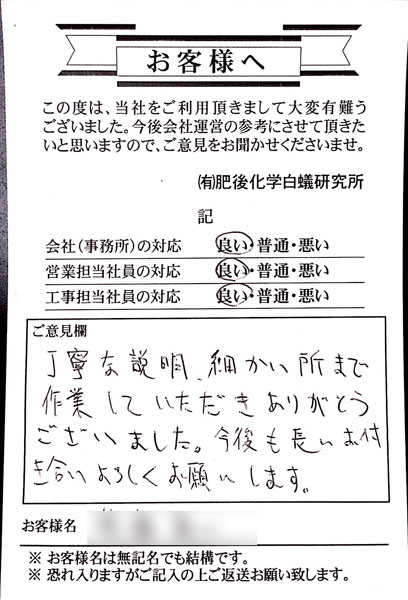 お客様へ
この度は、当社をご利用頂きまして大変有難う
ございました。今後会社運営の参考にさせて頂きた
いと思いますので、ご意見をお聞かせくださいませ。
㈲肥後化学白蟻研究所
記
会社(事務所)の対応 良い・普通・悪い
営業担当社員の対応 良い・普通・悪い
工事担当社員の対応 良い・普通・悪い
ご意見欄
丁寧な説明、細かい所まで
作業していただきありがとう
ございました。今後も長いお付
き合いよろしくお願いします。
お客様名
※ お客様名は無記名でも結構です。
※ 恐れ入りますがご記入の上ご返送お願い致します。